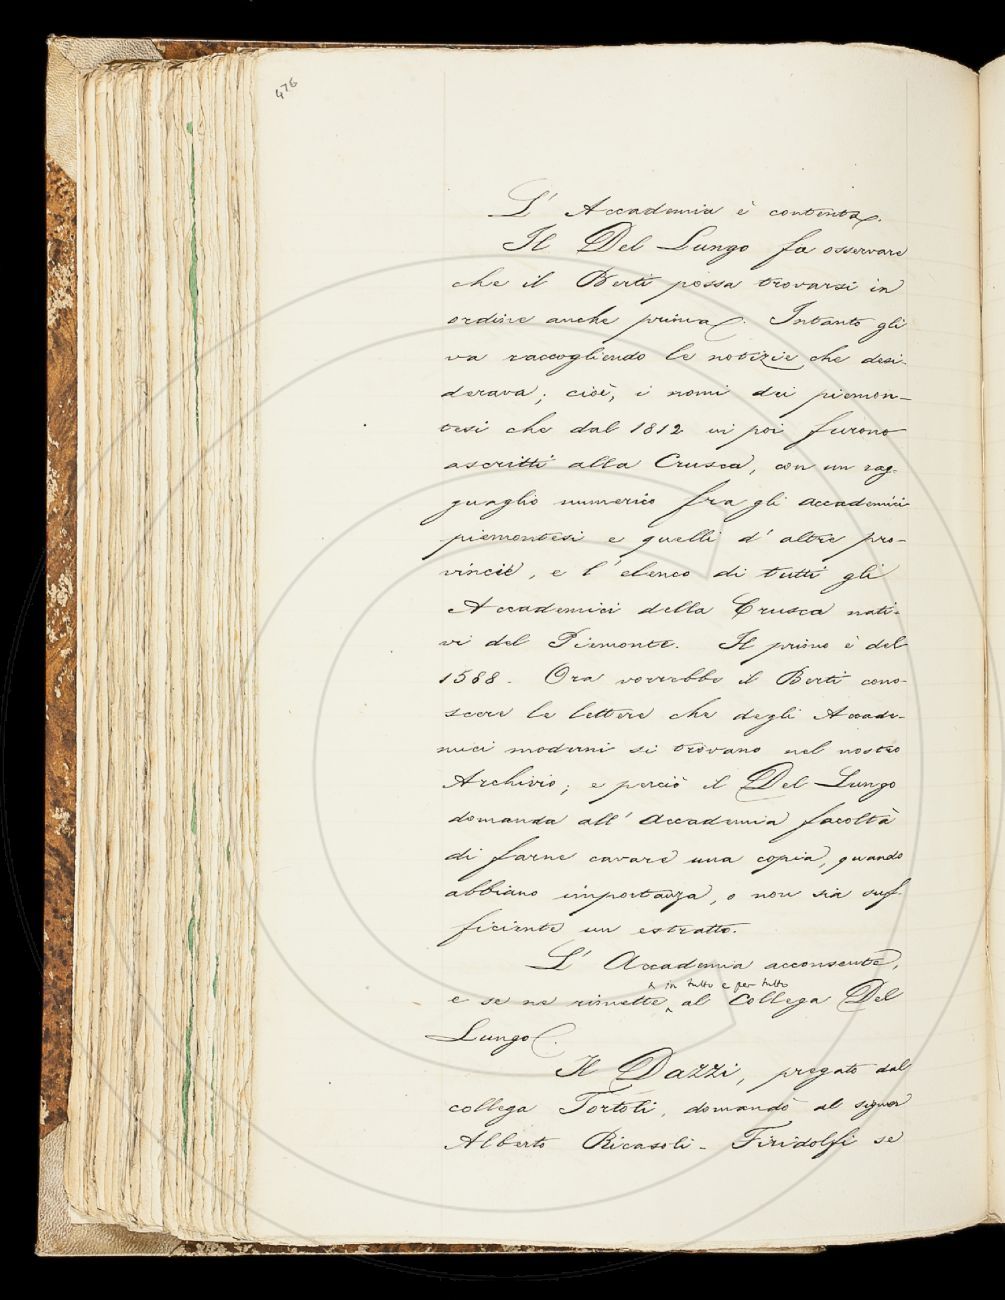 476
L' Accademia è contenta.
Il Del Lungo fa osservare
che il Berti possa trovarsi in
ordine anche prima. Intanto gli
va raccogliendo le notizie che desi-
derava; cioè, i nomi dei piemon-
tesi che dal 1812 in poi furono
ascritti alla Crusca, con un rag-
guaglio numerico fra gli accademici
piemontesi e quelli d' altre pro-
vincie, e l' elenco di tutti gli
Accademici della Crusca nati-
vi del Piemonte. Il primo è del
1588. Ora vorrebbe il Berti cono-
scere le lettere che degli Accade-
mici moderni si trovano nel nostro
Archivio; e perciò il Del Lungo
domanda all' Accademia facoltà
di farne cavare una copia, quando
abbiano importanza, o non sia suf-
ficiente un estratto.
L' Accademia acconsente,
in tutto e per tutto
e se ne rimette al Collega Del
Lungo.
Il Dazzi, pregato dal
collega Tortoli, domandò al signor
Alberto Ricasoli - Firidolfi se